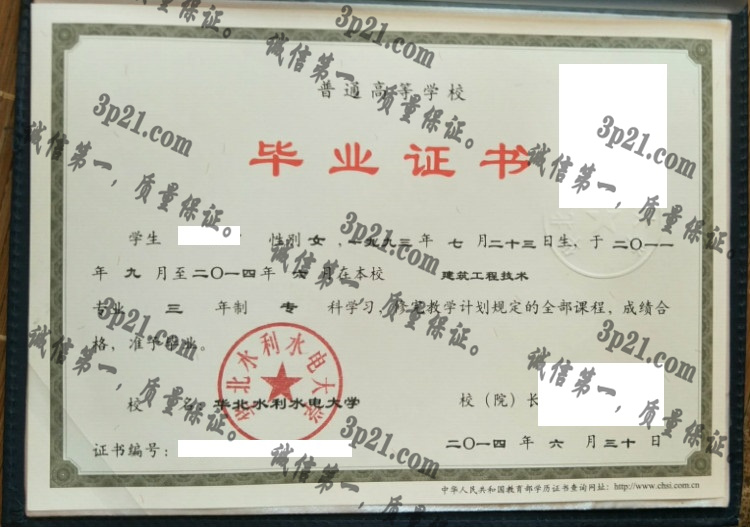 普通高等学校
毕业证书
学生 性别 女，一九九三年 七 月二十三日生，于 二〇一一
年 九 月至二〇一四年 六 月在本校 建筑工程技术
专业 三 年制 专 科学习，修完教学计划规定的全部课程，成绩合
格，准予毕业。
校 名：华北水利水电大学 校（院）长
华北水利水电大学
证书编号： 二〇一四 年 六 月 三十 日
中华人民共和国教育部学历证书查询网址：http://www.chsi.com.cn
3p21.com
诚信第一，质量保证。
3p21.com
诚信第一，质量保证。
3p21.com
诚信第一，质量保证。
3p21.com
诚信第一，质量保证。
3p21.com
诚信第一，质量保证。
3p21.com
诚信第一，质量保证。
3p21.com
诚信第一，质量保证。
3p21.com
诚信第一，质量保证。